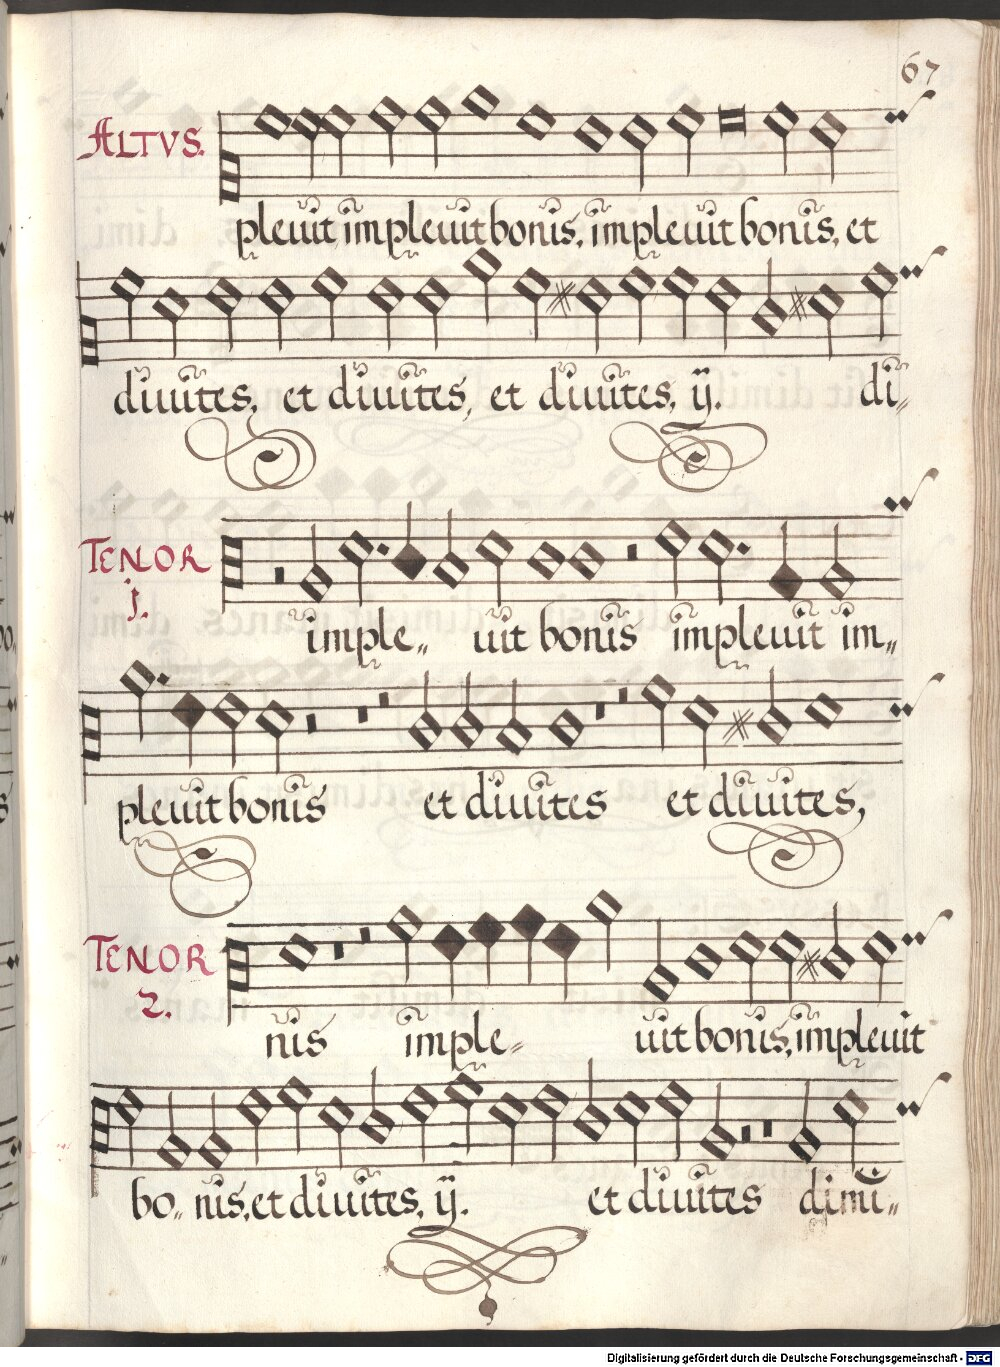 67
ALTVS.
pleuit impleuit bonis, impleuit bonis, et
diuites, et diuites, et diuites, ij. di„
TENOR
j.
imple„ uit bonis impleuit im„
pleuit bonis et diuites et diuites,
TENOR
2.
nis imple„ uit bonis, impleuit
bo„ nis, et diuites, ij. et diuites dimi„
Digitalisierung gefördert durch die Deutsche Forschungsgemeinschaft - DFG